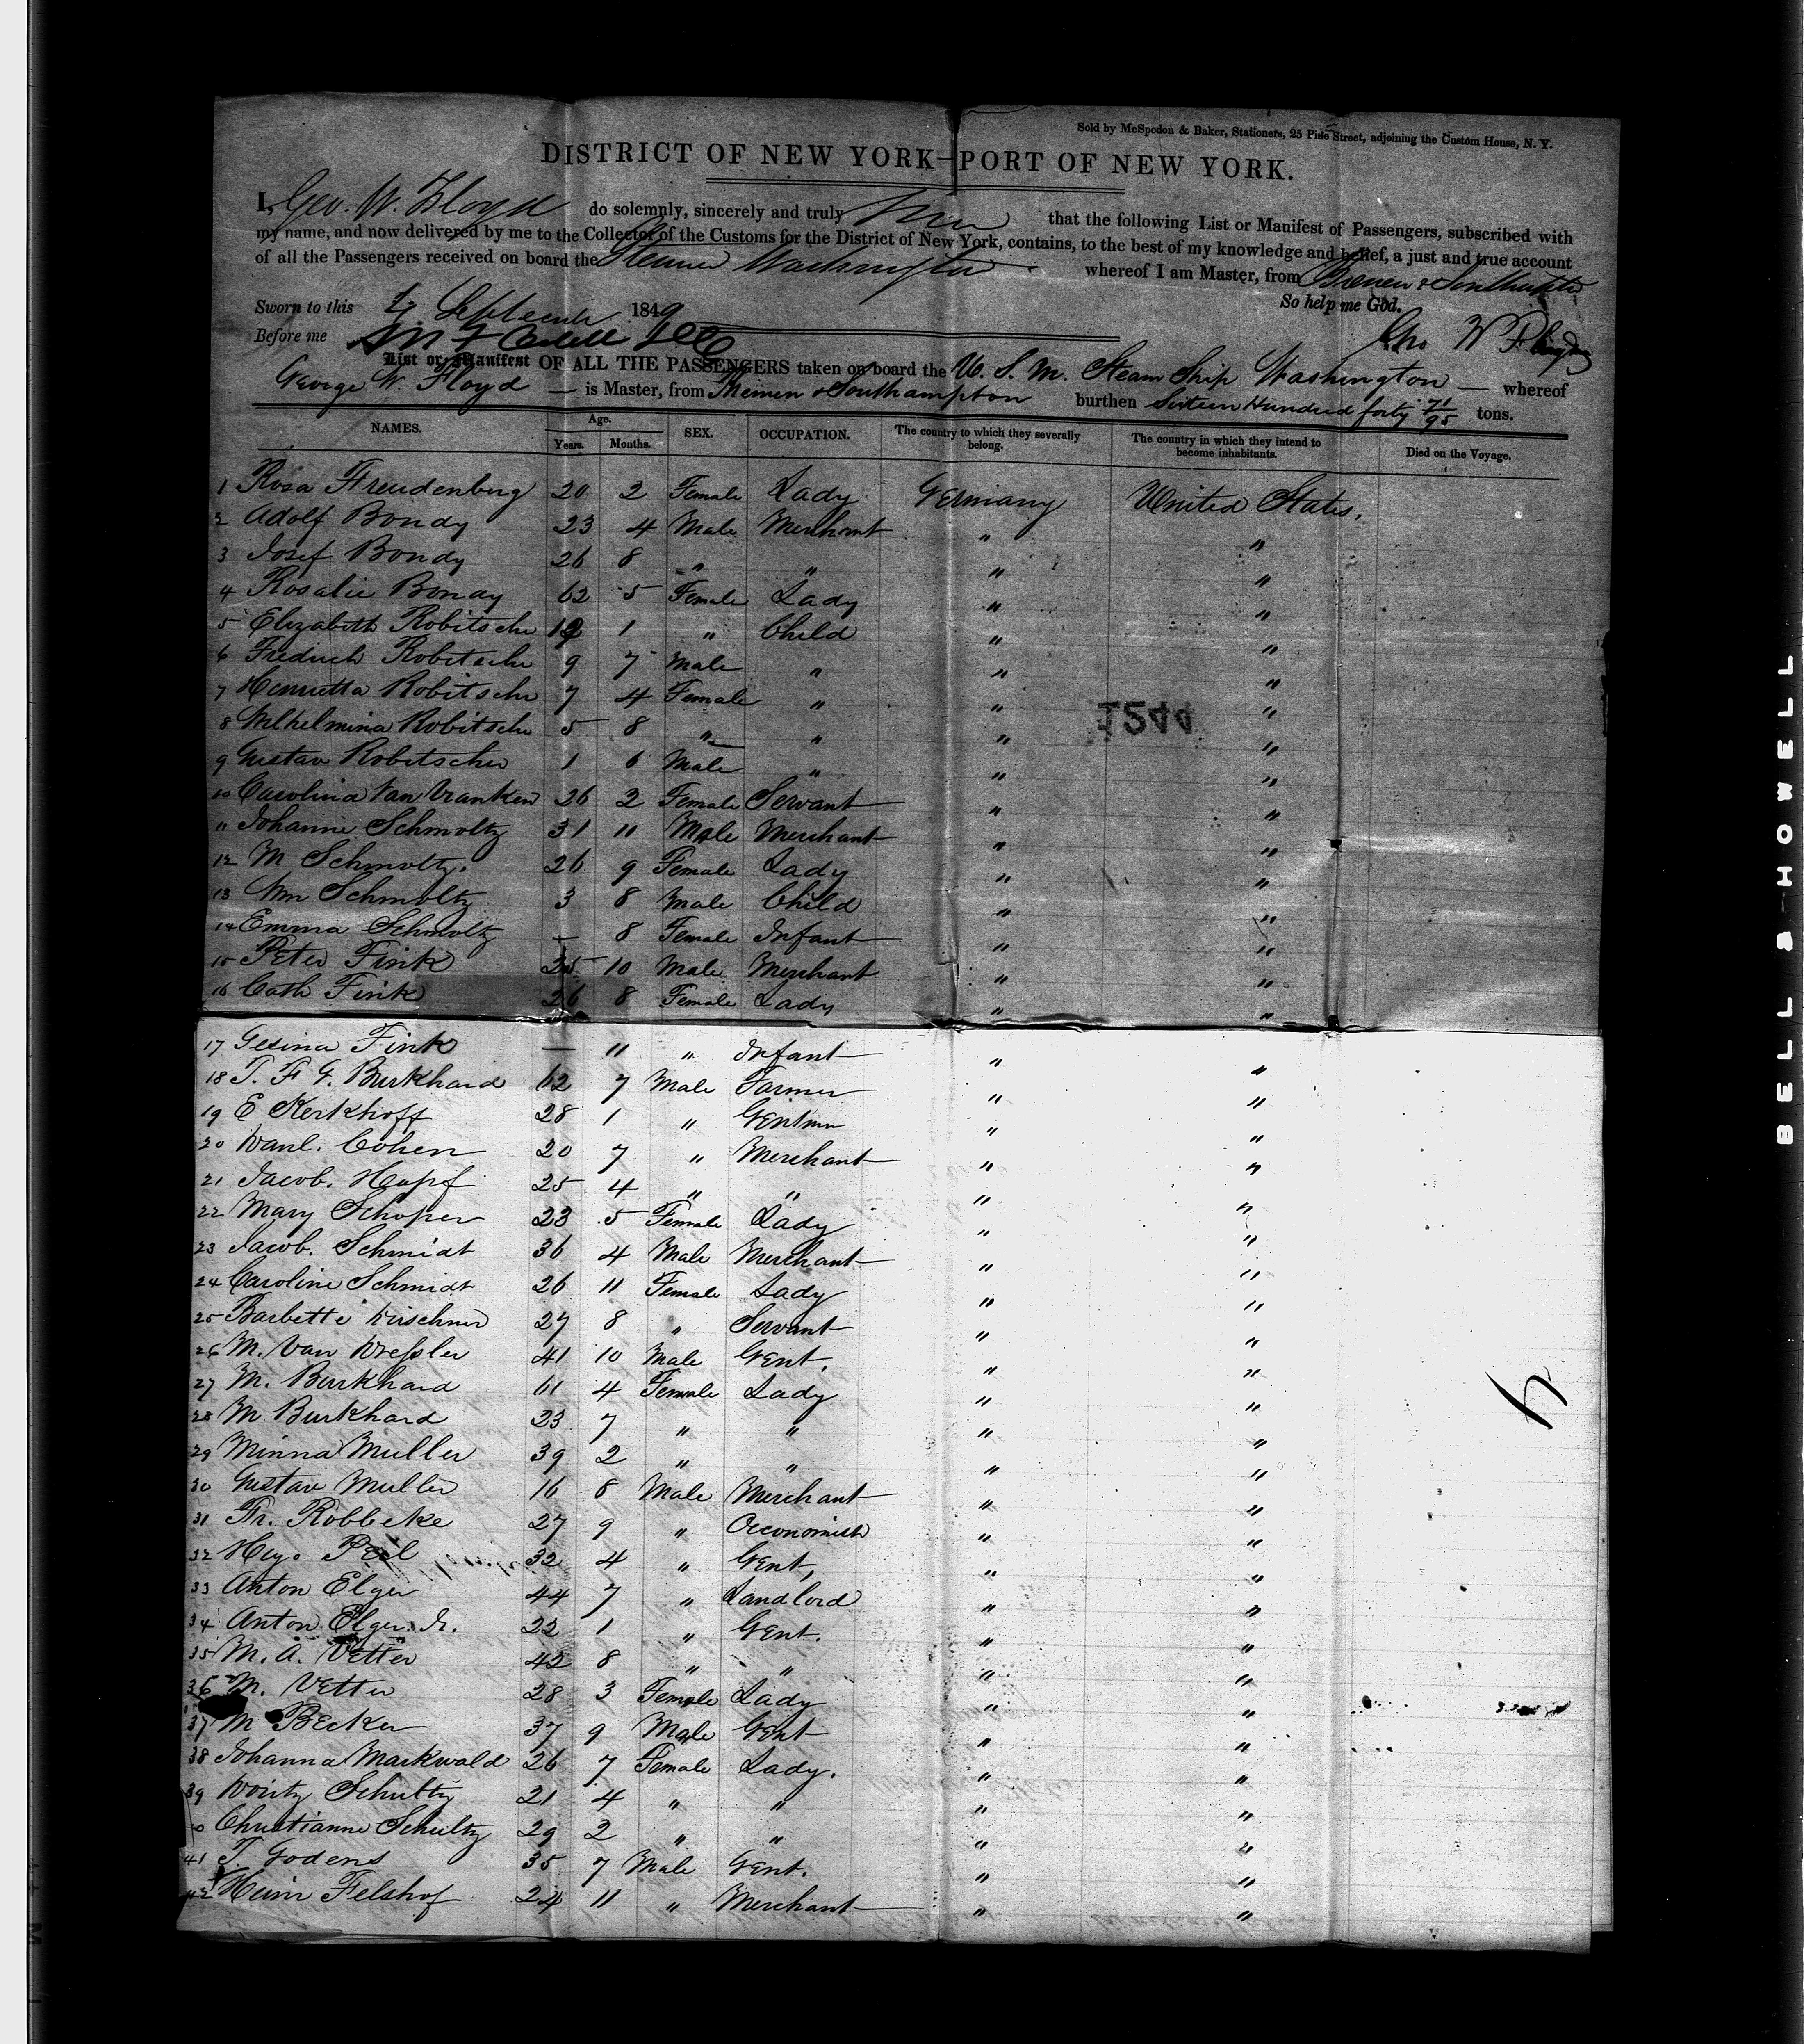 Sold by McSpedon & Baker, Stationers, 25 Pine Street, adjoining the Custom House, N. Y.
DISTRICT OF NEW YORK—PORT OF NEW YORK.
I, Geo. W. Floyd do solemnly, sincerely and truly that the following List or Manifest of Passengers, subscribed with
my name, and now delivered by me to the Collector of the Customs for the District of New York, contains, to the best of my knowledge and belief, a just and true account
of all the Passengers received on board the Steamer Washington whereof I am Master, from Bremen & Southampton
So help me God.
Sworn to this September 1849
Before me
Geo W Floyd
List or Manifest OF ALL THE PASSENGERS taken on board the U. S. M. Steam Ship Washington — whereof
George W. Floyd — is Master, from Bremen & Southampton burthen Sixteen Hundred forty 71/95 tons.
NAMES. Age. Years. Months. SEX. OCCUPATION. The country to which they severally belong. The country in which they intend to become inhabitants. Died on the Voyage.
1 Rosa Freudenberg 20 2 Female Lady Germany United States.
2 Adolf Bondy 23 4 Male Merchant " "
3 Josef Bondy 26 8 " " " "
4 Rosalie Bondy 62 5 Female Lady " "
5 Elizabeth Robitsche 1 " Child " "
6 Fredrich Robitsche 9 7 Male " " "
7 Henrietta Robitsche 7 4 Female " " "
8 Wilhelmina Robitsche 5 8 " " " "
1544
9 Gustav Robitscher 1 6 Male " " "
10 Carolina Van Vranken 26 2 Female Servant " "
11 Johanne Schmoltz 31 11 Male Merchant " "
12 M Schmoltz. 26 9 Female Lady " "
13 Wm Schmoltz 3 8 Male Child " "
14 Emma Schmoltz — 8 Female Infant " "
15 Peter Fink 25 10 Male Merchant " "
16 Cath Fink 26 8 Female Lady " "
17 Gesina Fink — 11 " Infant " "
18 T. F. G. Burkhard 62 7 Male Farmer " "
19 E Kerkhoff 28 1 " Gentmn " "
20 Danl. Cohen 20 7 " Merchant " "
21 Jacob. Hopf 25 4 " " " "
22 Mary Schoper 23 5 Female Lady " "
23 Jacob. Schmidt 36 4 Male Merchant " "
24 Caroline Schmidt 26 11 Female Lady " "
25 Barbette Dirschner 27 8 " Servant " "
26 M. Van Dressler 41 10 Male Gent. " "
27 M. Burkhard 61 4 Female Lady " "
28 M Burkhard 23 7 " " " "
29 Minna Muller 39 2 " " " "
30 Gustav Muller 16 8 Male Merchant " "
31 Fr. Robbeke 27 9 " Oeconomist " "
32 Hugo Peil 32 4 " Gent, " "
33 Anton Elger 44 7 " Landlord " "
34 Anton Elger Jr. 22 1 " Gent. " "
35 M. A. Vetter 42 8 " " " "
36 M. Vetter 28 3 Female Lady " "
37 M Becker 37 9 Male Gent " "
38 Johanna Markwald 26 7 Female Lady. " "
39 Schultz 21 4 " " " "
Christianne Schultz 29 2 " " " "
41 T Godens 35 7 Male Gent. " "
42 Heinr Felshof 24 11 " Merchant " "
BELL & HOWELL